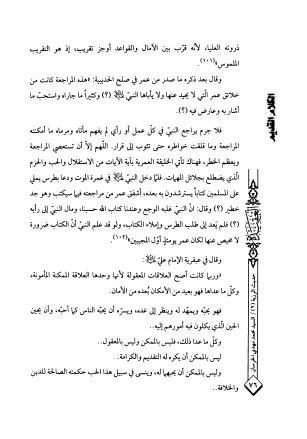 ذروته العليا، لأنّه قرّب بين الآمال والقواعد أوجز تقريب، إذ هو التقريب
الملموس»(١٠١).
وقال بعد ذكره ما صدر من عمر في صلح الحديبية: «هذه المراجعة كانت من
خلائق عمر الّتي لا يحيد عنها ولا يأباها النبيّ (؟) وكثيراً ما جاراه واستحبّ ما
أشار به وعارض فيه (؟).
فلا جرم يراجع النبيّ في كلّ عمل أو رأي لم يفهم مأتاه ومرماه ما أمكنته
المراجعة وما قلقت خواطره حتى تثوب إلى قرار. اللّهمّ إلاّ أن تستعصي المراجعة
ويعظم الخطر، فهناك تأتي الخليقة العمرية بآية الآيات من الاستقلال والحب والحزم
الّذي يضطلع بجلائل المهمات. فلمّا دخل النبيّ في غمرة الموت ودعا بطرس يملي
على المسلمين كتاباً يسترشدون به بعده، أشفق عمر من مراجعته فيما سيكتب وهو جد
خطير (؟) وقال: انّ النبيّ غلبه الوجع وعندنا كتاب الله حسبنا، ومال النبيّ إلى رأيه
(؟) فلم يعد إلى طلب الطرس وإملاء الكتاب، ولو قد علم النبيّ أنّ الكتاب ضرورة
لا محيص عنها لكان عمر يومئذٍ أوّل المجيبين»(١٠٢).
وقال في عبقرية الإمام عليّ:
«وربما كانت أصح العلاقات المعقولة لأنها وحدها العلاقة الممكنة المأمونة،
وكلّ ما عداها فهو بعيد من الأمكان بُعده من الأمان.
فهو يحبّه ويمهّد له وينظر إلى غده، ويسرّه أن يحبّه الناس كما أحبّه، وأن يحين
الحين الّذي يكلون فيه أمورهم إليه..
وكلّ ما عدا ذلك، فليس بالممكن وليس بالمعقول..
ليس بالممكن أن يكره له التقديم والكرامة.
وليس بالممكن أن يحبهما له، وينسى في سبيل هذا الحب حكمته الصالحة للدين
والخلافة..
الكلام القديم
السيد محمد مهدي الخرسان
٧٦